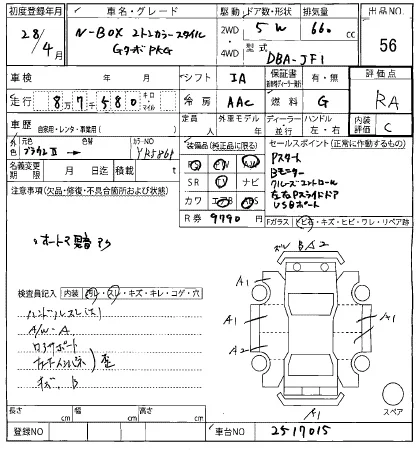 初度登録年月 車名・グレード 駆動 ドア数・形状 排気量 出品NO
28/4月 N-BOX 2トンカラースタイル Gターボ PKG 2WD・4WD 5W 660cc 56
型式 DBA-JF1
車検 年 月 シフト IA 保証書 有・無 評価点
走行 87580 キロ・マイル 冷房 AAC 燃料 G RA
車歴 自家用・レンタ・事業用( ) 定員 人 外車モデル 年 ディーラー 並行 ハンドル 左・右 内装評価 C
外色 元色 ブラウンII 色替 カラーNO YR586P
装備品(純正品に限る) セールスポイント(正常に作動するもの)
名義変更期限 月 日 積載 t
PS PW AW
SR TV ナビ
カワ エアB ABS
R券 9790円
Pスタート
Bモニター
クルーズコントロール
左右Pスライドドア
USBポート
注意事項(欠品・修復・不具合箇所および状態)
Fガラス トビ石・キズ・ヒビ・ワレ・リペア跡
BA2
A1
A1
A1
A2
A1
検査員記入 内装 汚レ・スレ・キズ・キレ・コゲ・穴
ハンドルスレ(大)
A/W-A
キズ、B
長さ cm 幅 cm 高さ cm スペア
登録NO 車台NO 2517015